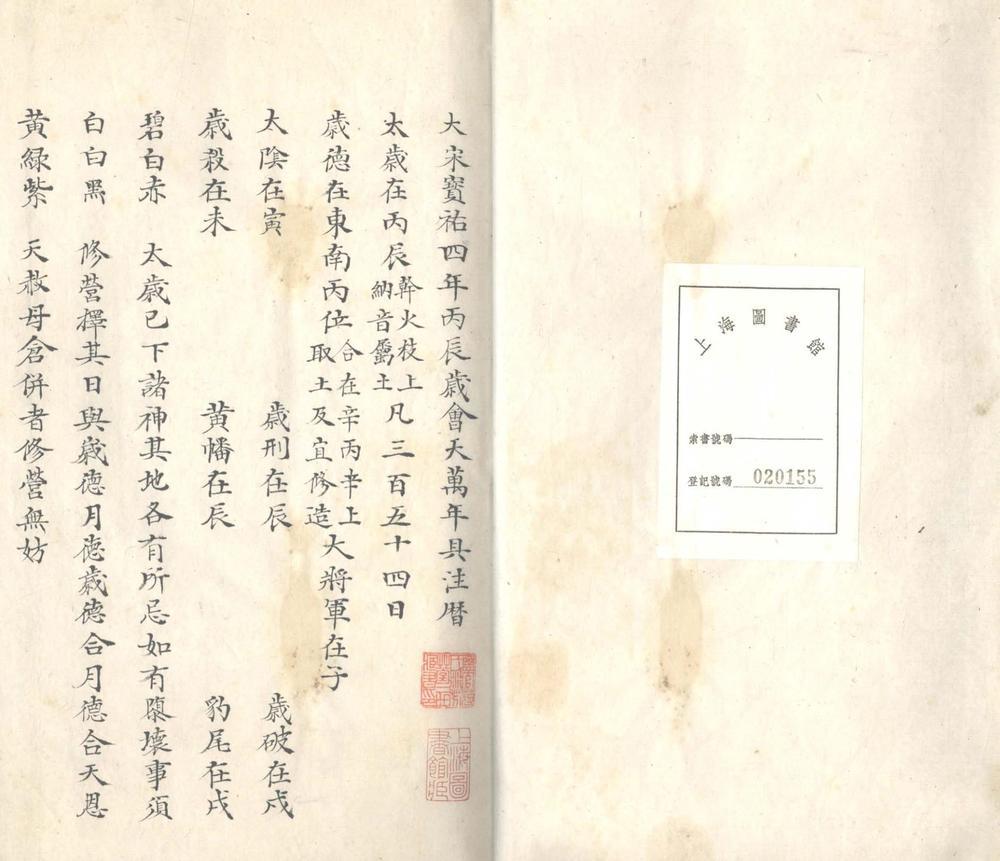 上海圖書館
索書號碼
登記號碼 020155
大宋寶祐四年丙辰歲會天萬年具注曆
太歲在丙辰幹火枝土納音屬土凡三百五十四日
歲德在東南丙位合在辛丙辛上取土及宜修造大將軍在子
太陰在寅 歲刑在辰 歲破在戌
歲殺在未 黃幡在辰 豹尾在戌
碧白赤 太歲已下諸神其地各有所忌如有隳壞事須
白白黑 修營擇其日與歲德月德歲德合月德合天恩
黃綠紫 天赦母倉併者修營無妨
上海圖書館藏